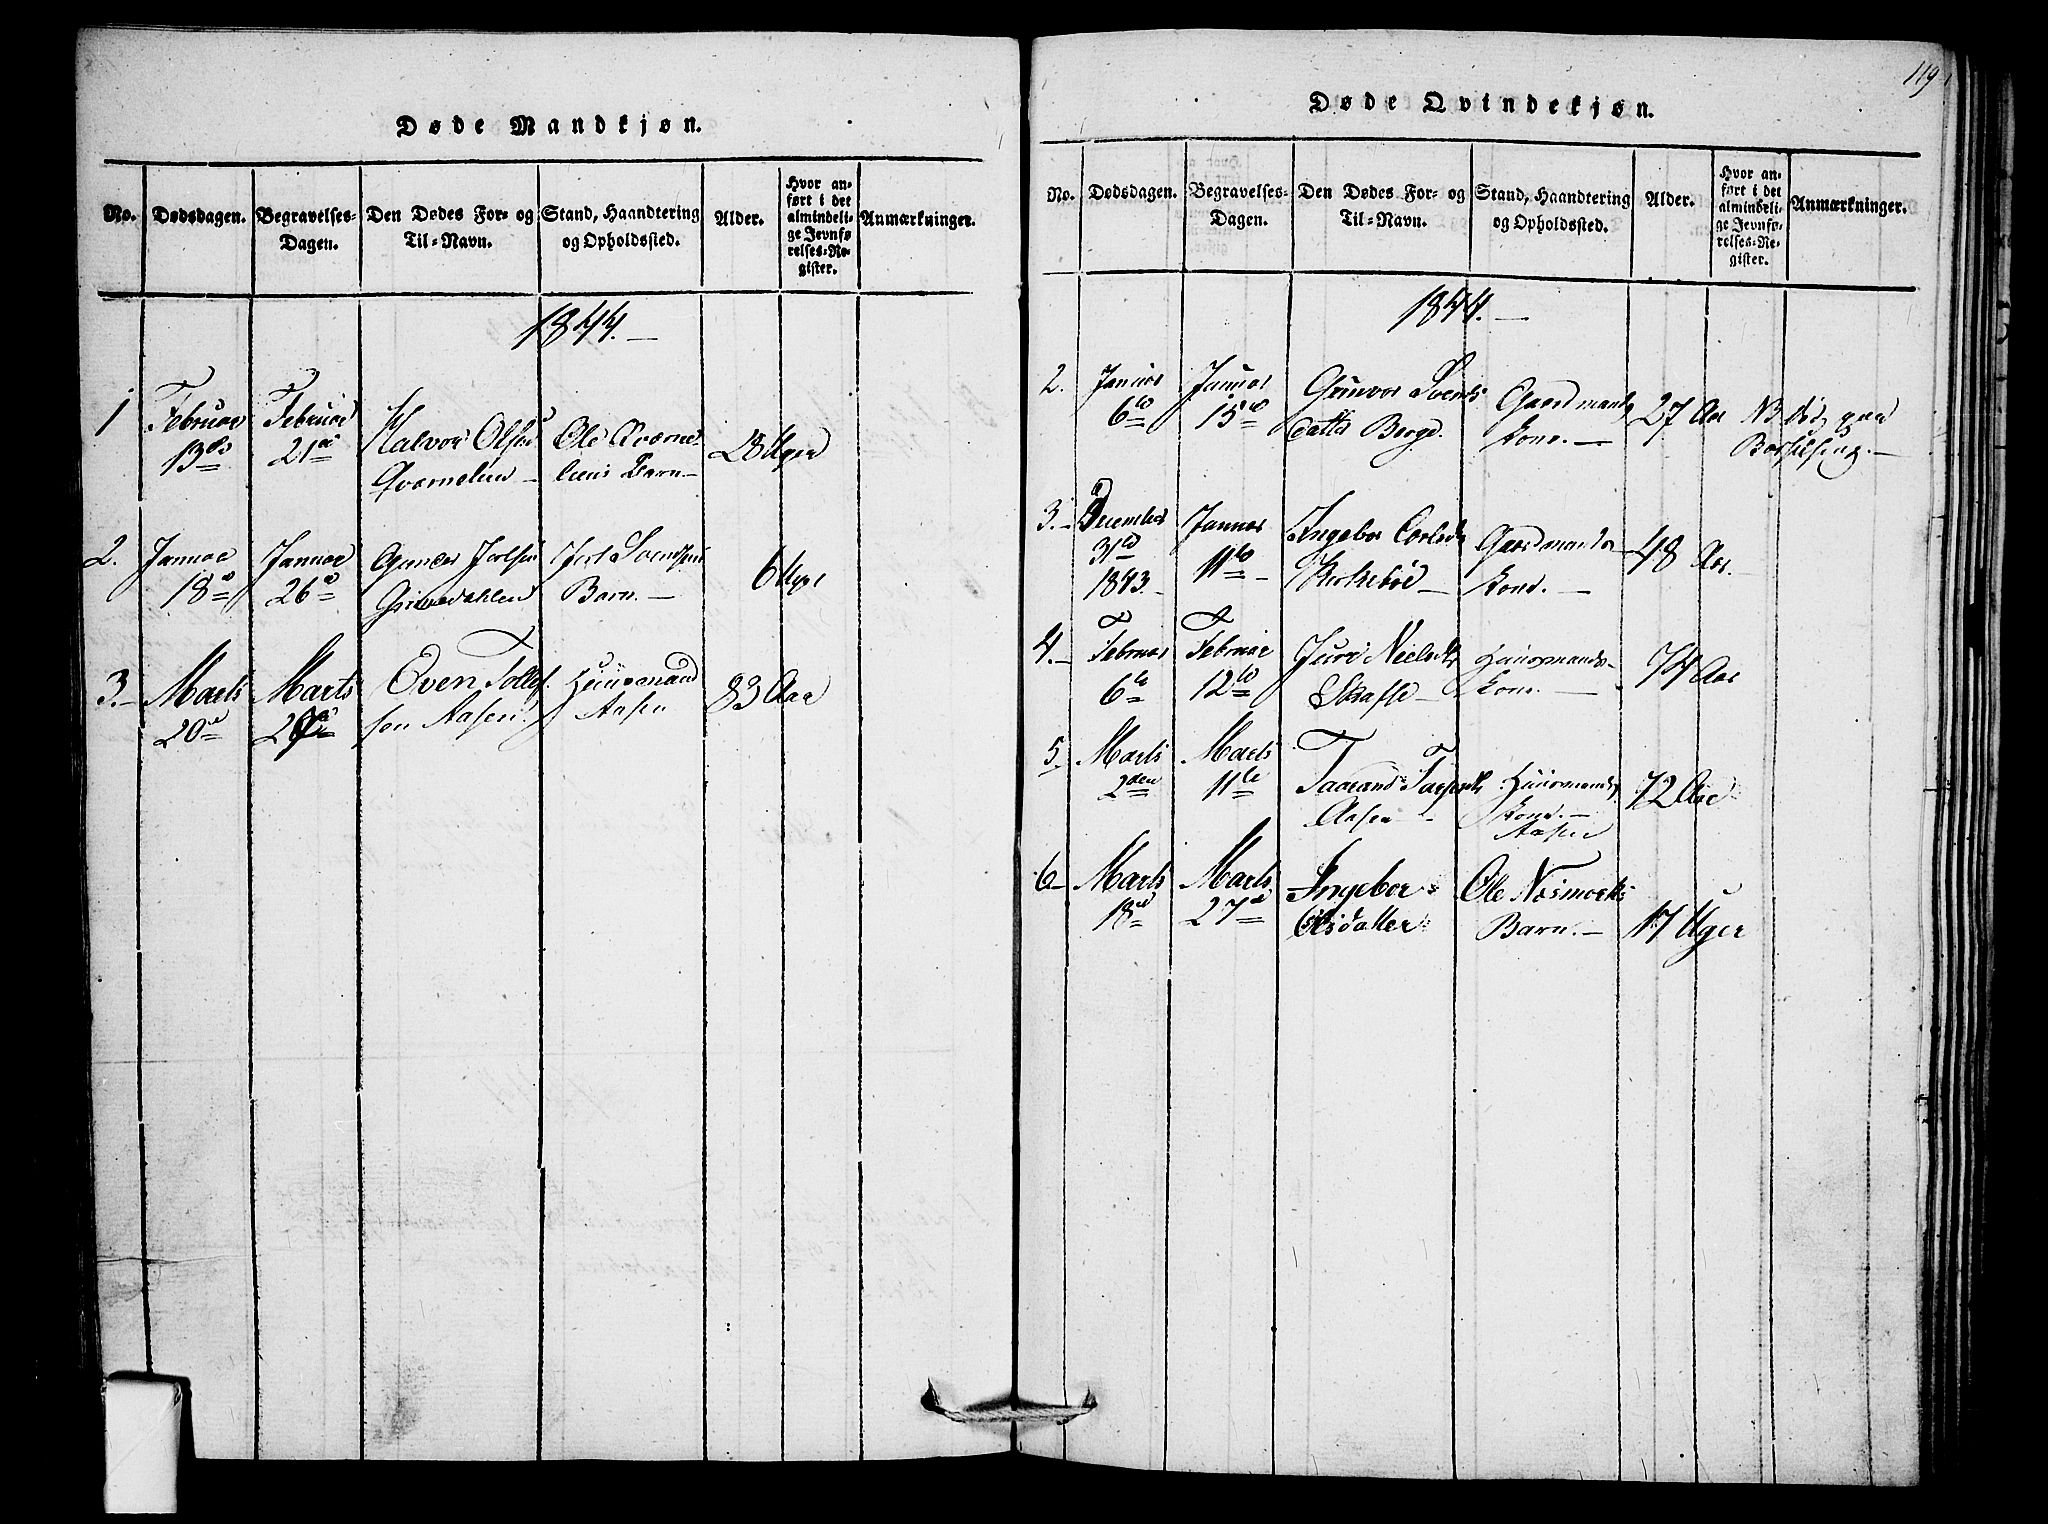 119
Døde Mandkjøn.
No.
Dødsdagen.
Begravelses-
Dagen.
Den Dødes For- og
Til-Navn.
Stand, Haandtering
og Opholdssted.
Alder.
Hvor an-
ført i det
almindeli-
ge Jevnfø-
relses-Re-
gister.
Anmærkninger.
1844.
1
Februar
13de
Februar
21de
Halvor Olsen
Qvernelien
Ole Qverne
liens Barn
28 Uger
2.
Januar
18de
Januar
26de
Gunder Jerlsen
Grimedahlen
Jerl Svendsens
Barn.
6 Uger
3.
Marts
20de
Marts
Even Tollef-
sen Aasen
Huusmand
Aasen
83 Aar
Døde Qvindekjøn.
No.
Dødsdagen.
Begravelses-
Dagen.
Den Dødes For- og
Til-Navn.
Stand, Haandtering
og Opholdssted.
Alder.
Hvor an-
ført i det
almindeli-
ge Jevnfø-
relses-Re-
gister.
Anmærkninger.
1844.
2.
Januar
6te
Januar
15de
Gunvor Svends
datter Berge
Gaardmands
kone.
27 Aar
NB døde paa
Barselseng.
3.
December
31te
1843.
Januar
11te
Ingebor
Kirkebøe
Gaardmands
kone.
48 Aar.
4.
Februar
6te
Februar
12te
Juri Nielsdtr
Skaffse
Huusmands-
kone.
74 Aar
5.
Marts
2den
Marts
11te
Taarand
Aasen
Huusmands
kone.
Aasen
72 Aar
6
Marts
18de
Marts
27de
Ingebor
Olsdatter
Ole Næsmoens
Barn.
17 Uger